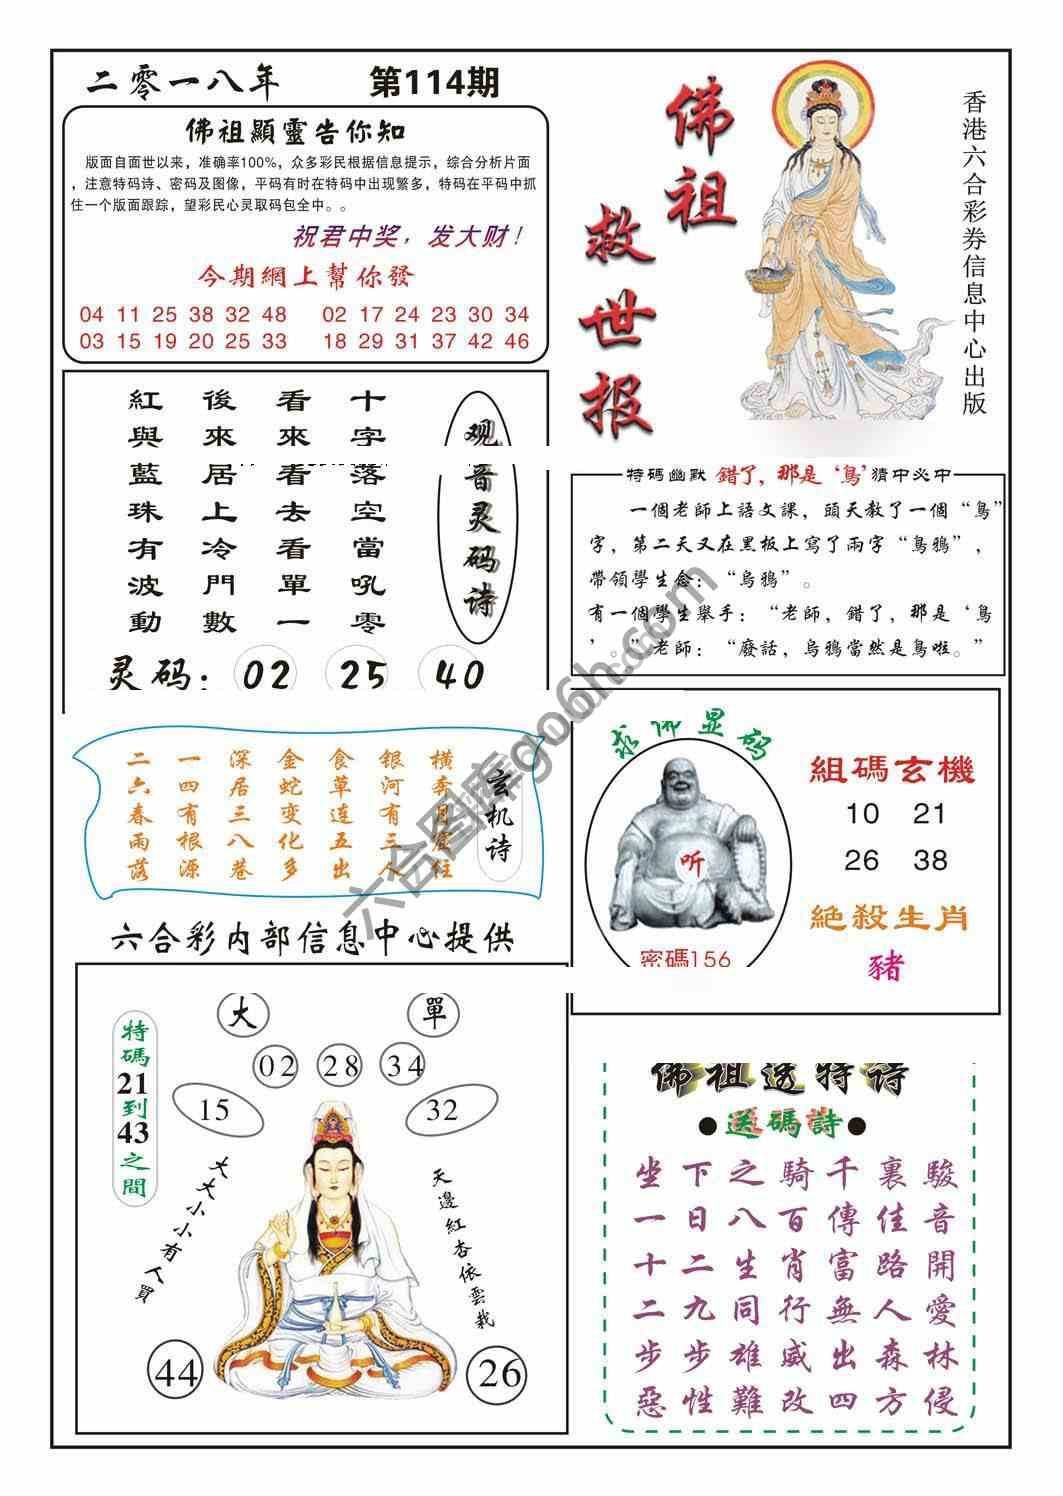 二零一八年 第114期
佛祖顯靈告你知
版面自面世以来，准确率100%，众多彩民根据信息提示，综合分析片面
，注意特码诗、密码及图像，平码有时在特码中出现繁多，特码在平码中抓
住一个版面跟踪，望彩民心灵取码包全中。。
祝君中奖，发大财！
今期網上幫你發
04 11 25 38 32 48 02 17 24 23 30 34
03 15 19 20 25 33 18 29 31 37 42 46
佛祖
救世报
香港六合彩券信息中心出版
观音灵码诗
十字落空當吼零
看來看去看單一
後來居上冷門數
紅與藍珠有波動
灵码：02 25 40
特码幽默 錯了，那是‘鳥’猜中必中
一個老師上語文課，頭天教了一個“鳥”
字，第二天又在黑板上寫了兩字“烏鴉”，
帶領學生念：“烏鴉”。
有一個學生舉手：“老師，錯了，那是‘鳥
’。”老師：“廢話，烏鴉當然是鳥啦。”
玄机诗
横奔月宫往
银河有三人
食草连五出
金蛇变化多
深居三八巷
一四有根源
二六春雨落
求佛显码
听
密碼156
組碼玄機
10 21
26 38
絕殺生肖
豬
六合彩内部信息中心提供
大 單
02 28 34
15 32
特碼21到43之間
大大小小有人買
天邊紅杏依雲栽
44 26
佛祖透特诗
●送碼詩●
坐下之騎千裏駿
一日八百傳佳音
十二生肖富路開
二九同行無人愛
步步雄威出森林
惡性難改四方侵
六合图库go6h.com